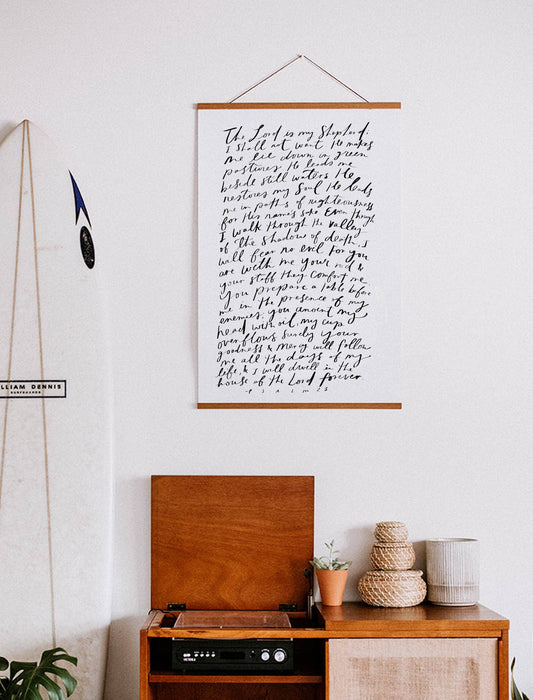 The Lord is my Shepherd.
I shall not want He makes
me lie down in green
pastures He leads me
beside still waters He
restores my soul He leads
me in paths of righteousness
for His name's sake Even though
I walk through the valley
of the shadow of death, I
will fear no evil for you
are with me your rod &
your staff they comfort me
You prepare a table before
me in the presence of my
enemies; you anoint my
head with oil, my cup
overflows Surely your
goodness & mercy will follow
me all the days of my
life, & I will dwell in the
house of the Lord forever
LLIAM DENNIS
SURFBOARDS
VICTROLA